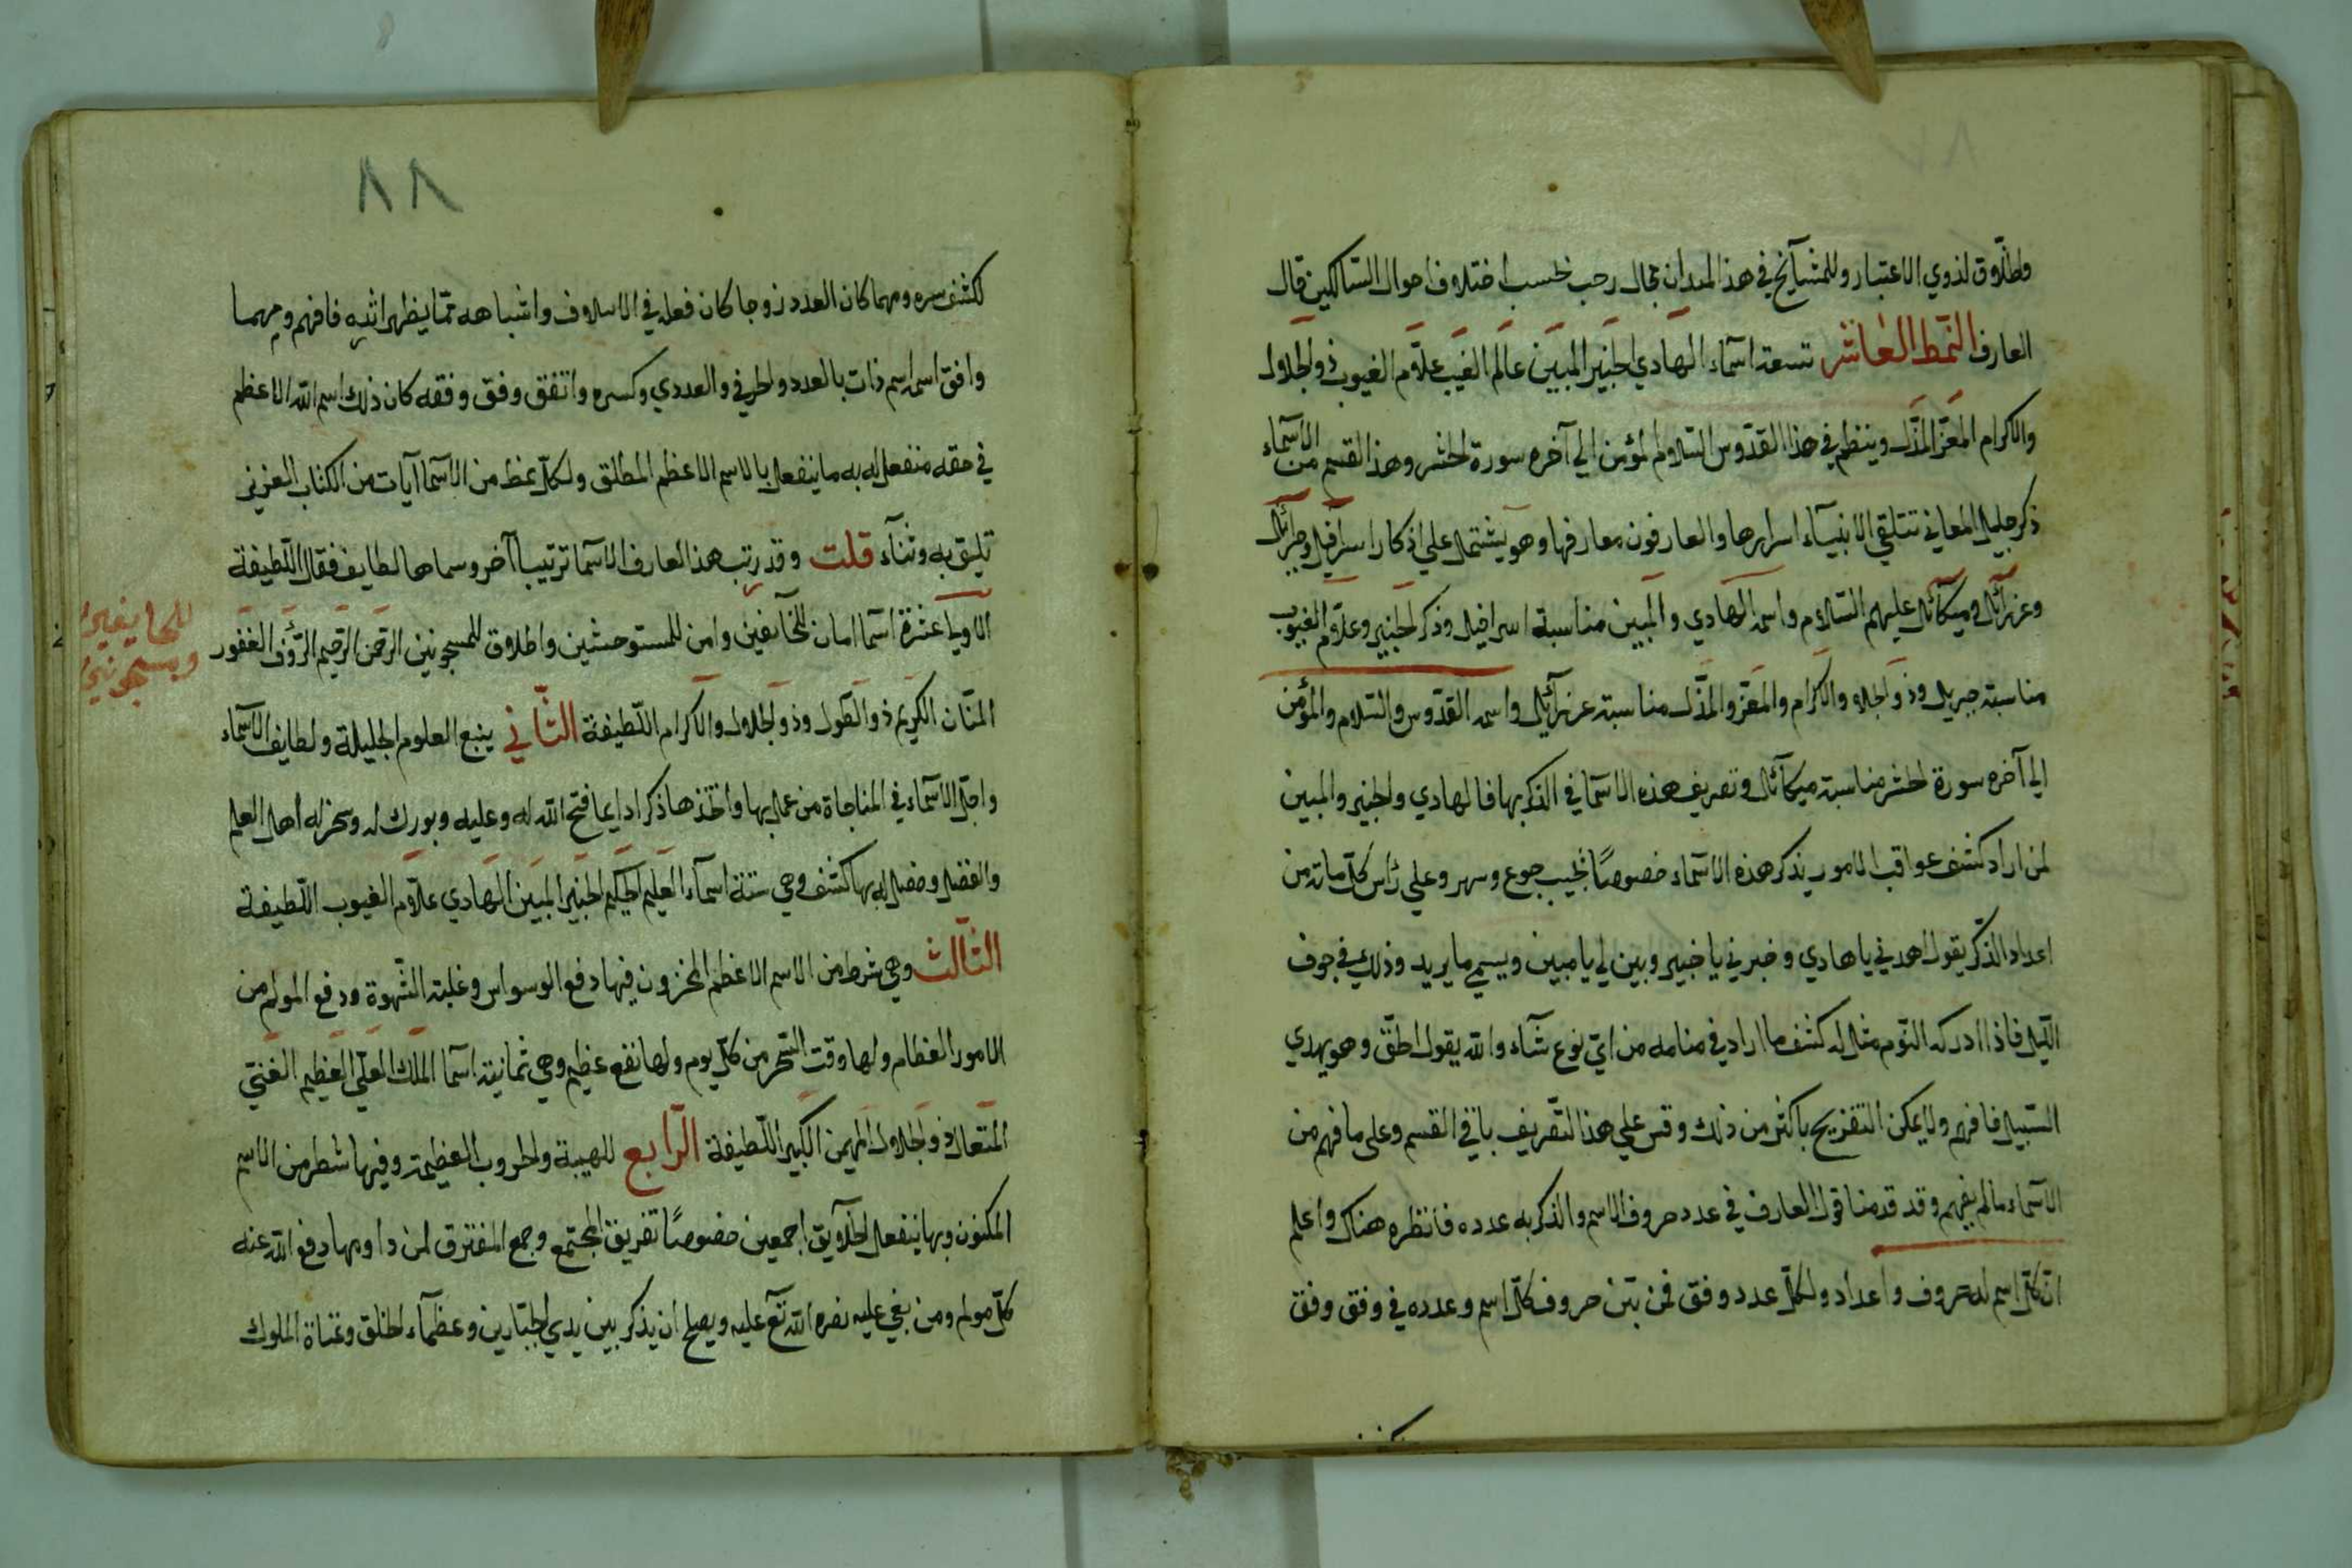 ٨٧
وطلّاق لذوي الاعتبار وللمشآيخ في هذا الميدان مجال رحب بحسب اختلاف احوال السّالكين قال
العارف النّمط العاشر تسعة اسمآء الهادي الخبير المبين عالم الغيب علّام الغيوب ذو الجلال
والاكرام المعزّ المذلّ وينظم في هذا القدّوس السّلام المؤمن الي آخره سورة الحشر وهذا القسم من الأسمآء
ذكر جليل المعاني تتلقي الانبيآء اسرارها والعارفون معارفها وهو يشتمل علي اذكار اسرآفيل وجبرآئيل
وعزرآئيل وميكآئل عليهم السّلام واسمه الهادي والمبين مناسبة اسرافيل وذكر الخبير وعلّام الغيوب
مناسبة جبريل وذو الجلال والاكرام والمعزّ والمذّل مناسبة عزرآئيل واسمه القدّوس والسّلام والمؤمن
الي آخره سورة الحشر مناسبة ميكآئل وتصريف هذه الاسمآ في الذكر بها فالهادي والخبير والمبين
لمن اراد كشف عواقب الامور يذكر هذه الاسمآء خصوصًا بحيب جوع وسهر وعلي رأس كلّ مائة من
اعداد الذّكر يقول اهدني يا هادي وخبرني يا خبير وبين لي يا مبين ويسمي ما يريد وذلك في جوف
اللّيل فاذا ادركه النّوم مثل له كشف ما اراد في منامه من ايّ نوع شآء والله يقول الحقّ وهو يهدي
السّبيل فافهم ولا يمكن التفريح باكثر من ذلك وقس علي هذا التّصريف باقي القسم وعلي ما فهم من
الاسمآء ما لم يفهم وقد قدمنا قول العارف في عدد حروف الاسم والذكر به عدده فانظره هناك واعلم
انّ كلّ اسم له حروف واعداد ولكلّ عدد وفق فمن بيّن حروف كلّ اسم وعدده في وفق وفق
٨٨
كشف سره ومهما كان العدد زوجا كان فعله في الاسلاف واشباهه ممّا يظهر اثره فافهم ومهما
وافق اسمه اسم ذات بالعدد والحرفي والعددي وكسره واتفق وفق وفقه كان ذلك اسم الله الاعظم
في حقه منفعل له به ما ينفعل بالاسم الاعظم المطلق ولكلّ نمط من الاسمآ آيات من الكتاب العزيز
تليق به وثنآء قلت وقد رتب هذا العارف الاسمآ ترتيبا آخر وسماها لطايف فقال اللّطيفة
الاولي عشرة اسمآ امان للخآئفين وامن للمستوحشين واطلاق للمسجونين الرّحمن الرّحيم الرّؤف الغفور
المنّان الكريم ذو الطّول وذو الجلال والاكرام اللّطيفة الثّاني ينبع العلوم الجليلة ولطايف الاسمآء
واجلّ الاسمآء في المناجاة من عمل بها واتّخذها ذكرا دايما فتح الله له وعليه وبورك له وسخر له اهل العلم
والفضل وحصل له بها كشف وهي ستة اسمآء العليم الحكيم الخبير المبين الهادي علّام الغيوب اللّطيفة
الثّالث وهي شرط من الاسم الاعظم المخزون فيها دفع الوسواس وغلبة الشّهوة ودفع المولم من
الامور العظام ولها وقت السّحر من كلّ يوم ولها نفع عظيم وهي ثمانية اسمآ الملك العليّ العظيم الغنيّ
المتعال ذو الجلال المهيمن الكبير اللّطيفة الرّابع للهيبة والحروب العظيمة وفيها شطر من الاسم
المكنون وبها ينفعل الخلآيق اجمعين خصوصًا تفريق المجتمع وجمع المفترق لمن داومها دفع الله عنه
كلّ مولم ومن بغي عليه نصره الله تعٓ عليه ويصلح ان يذكر بين يدي الجبّارين وعظمآء الخلق وعتاة الملوك